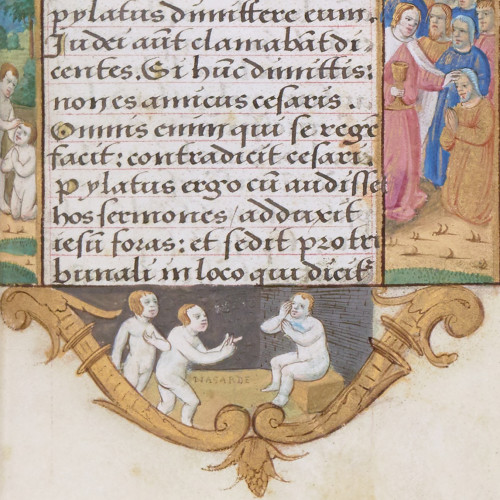 pylatus dimittere eum.
Iudei aūt clamabāt di
centes. Si hūc dimittis:
non es amicus cesaris.
Omnis enim qui se regē
facit: contradicit cesari
Pylatus ergo cū audisset
hos sermones / adduxit
iesū foras: et sedit pro tri
bunali in loco qui dicit
NASARDE